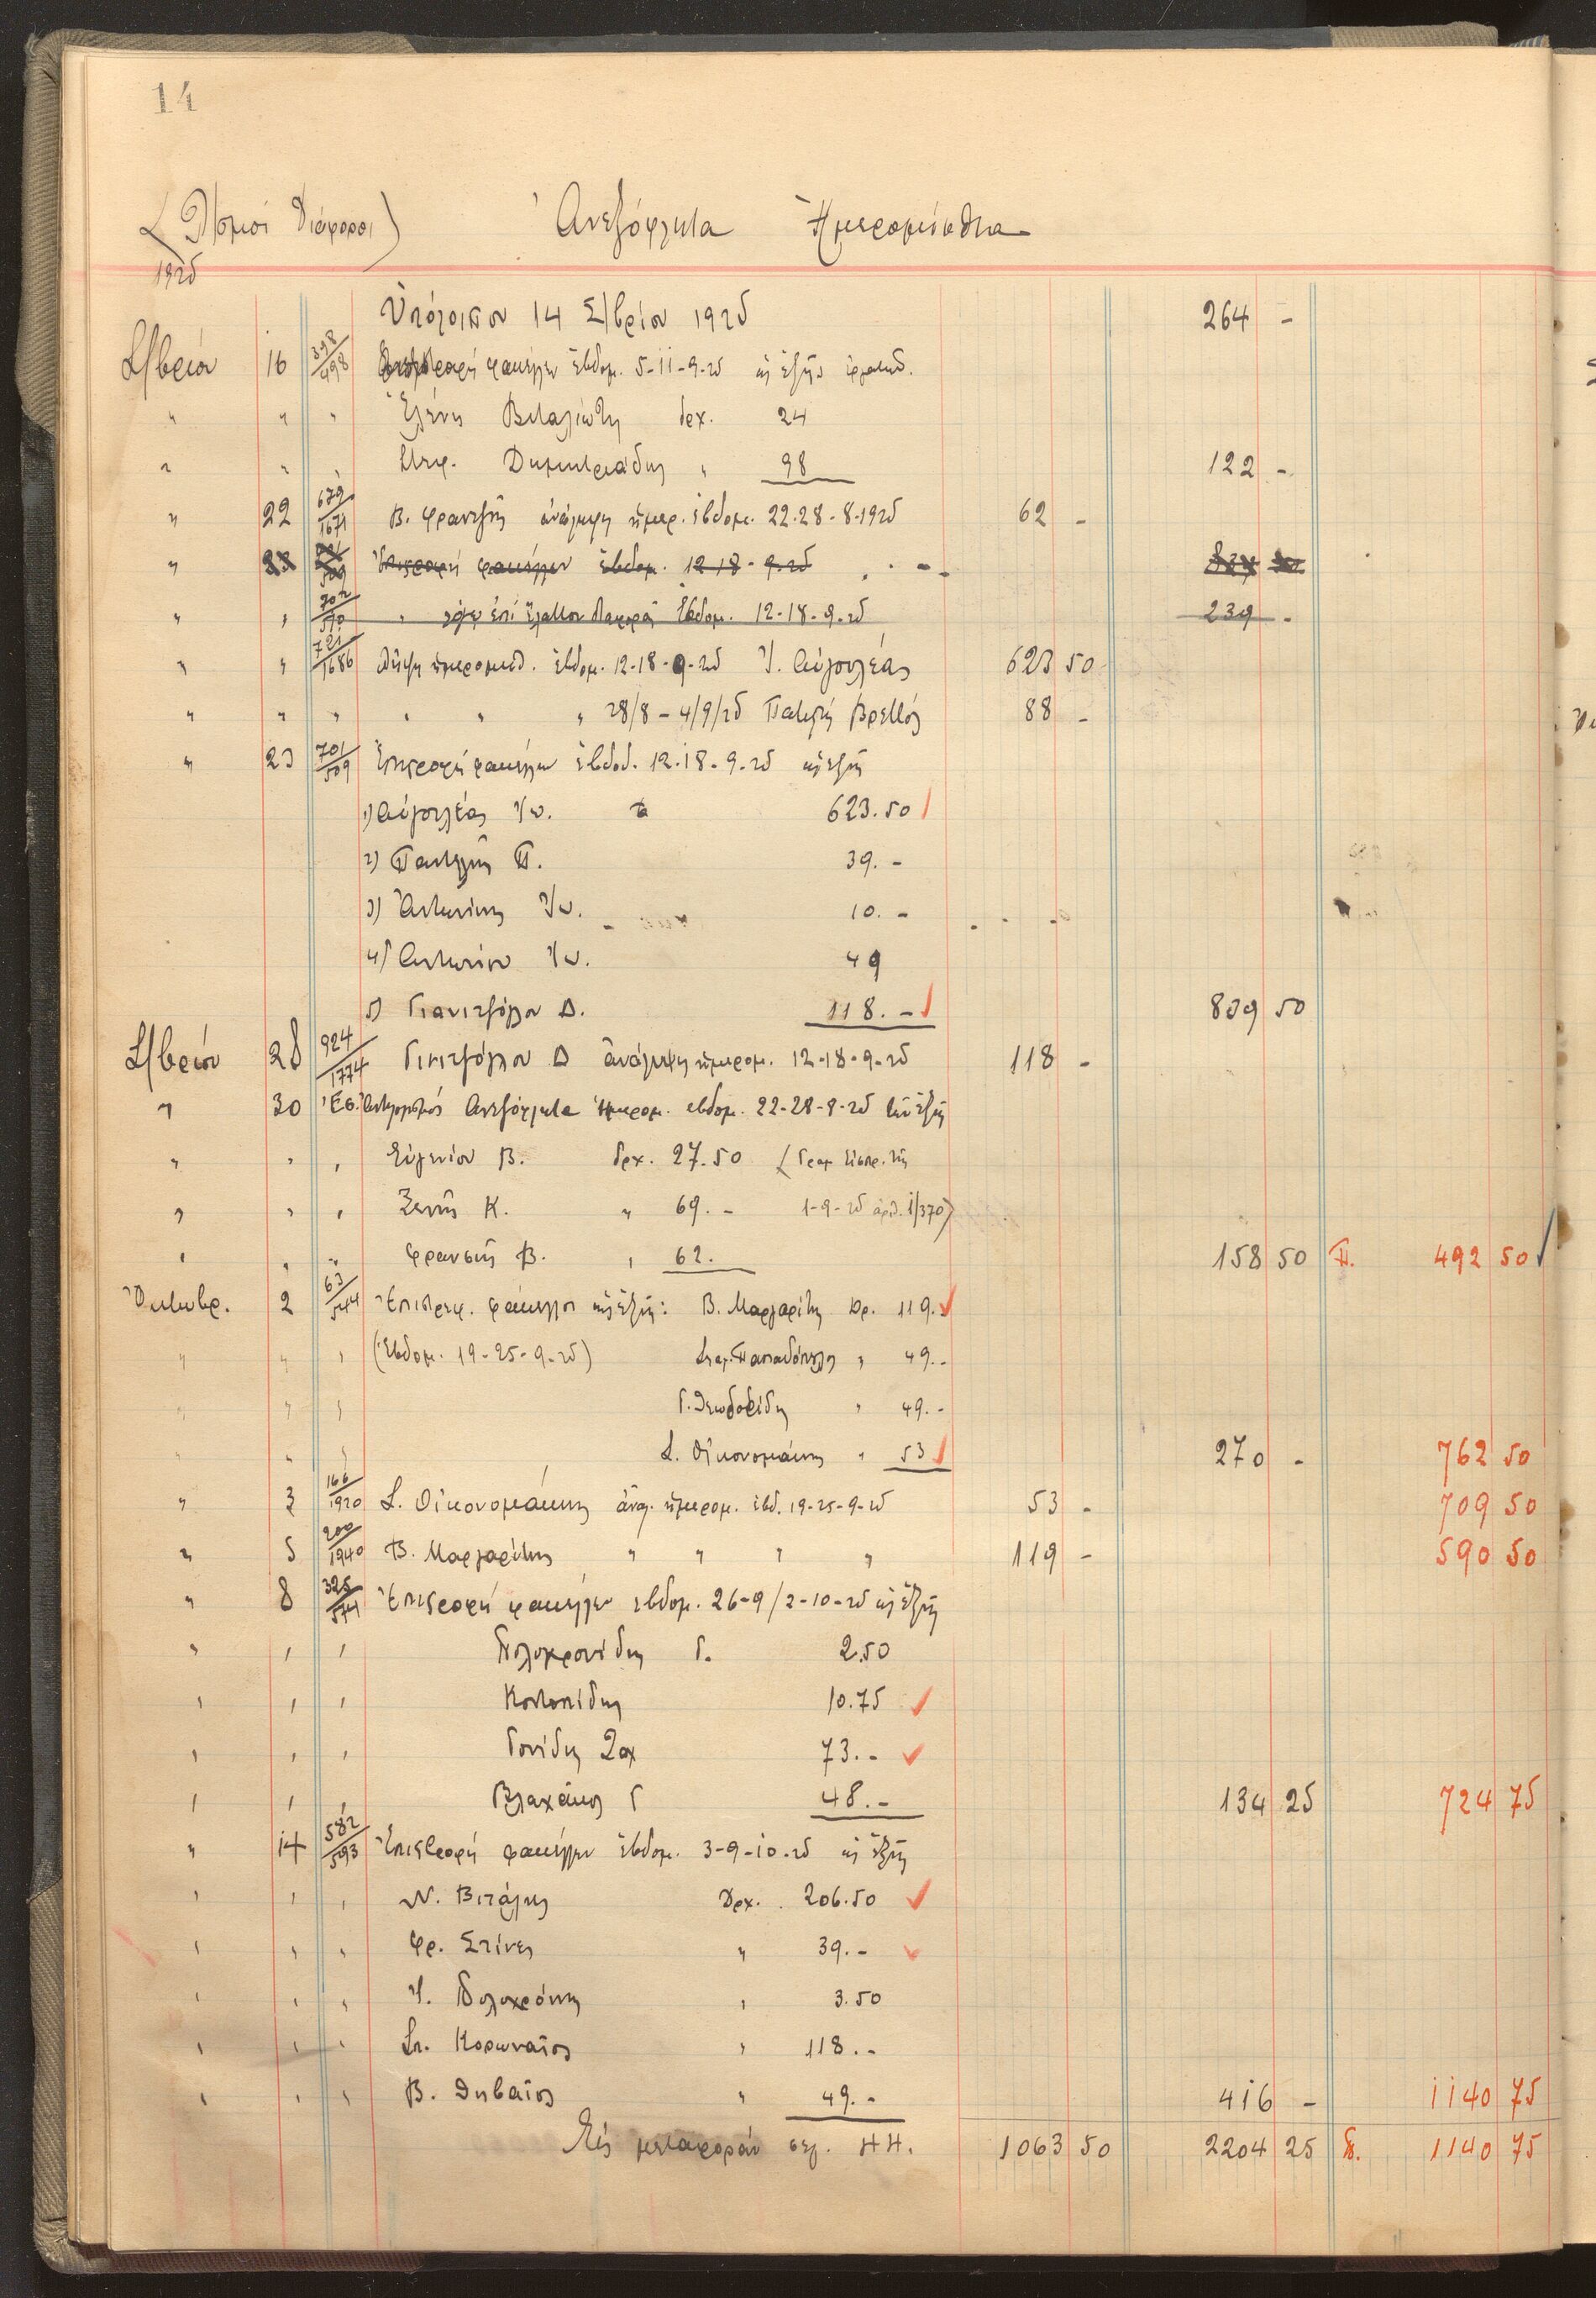 14
(Λ/σμοί διάφοροι) Ἀνεξόφλητα Ἡμερομίσθια
1925
Ὑπόλοιπον 14 Σ/βρίου 1925 264 -
Σ/βρίου 16 398/498 Ἐπιστροφή φακέλλων ἑβδομ. 5-11-9-25 ὡς ἑξῆς
" " " Ἑλένη δρχ. 24
" " " Δημητριάδης " 98 122 -
" 22 679/1671 Β. Φραντζῆς ἀνάληψη ἡμερ. ἑβδομ. 22-28-8-1925 62 -
" 23 Ἐπιστροφή φακέλλων ἑβδομ. 12-18-9-25
" " 702/510 " λόγω ἐπί ἔλαττον διαφορᾶ ἑβδομ. 12-18-9-25 239 -
" " 721/1686 Λῆψη ἡμερομισθ. ἑβδομ. 12-18-9-25 Ἰ. Αὐγουλέας 623 50
" " " " " " 28/8-4/9/25 Παντελῆ Βρεττός 88 -
" 23 701/509 Ἐπιστροφή φακέλλων ἑβδομ. 12-18-9-25 ὡς ἑξῆς
1) Αὐγουλέας Ἰω. 623.50
2) Παντελῆς Π. 39.-
3) Ἀντωνίου Ἰω. 10.-
4) Ἀντωνίου Ἰω. 49
5) Γιαντζόγλου Δ. 118.- 839 50
Σ/βρίου 28 924/1774 Γιαντζόγλου Δ ἀνάληψη ἡμερομ. 12-18-9-25 118 -
" 30 Ἀντιλογισμός Ἀνεξόφλητα Ἡμερομ. ἑβδομ. 22-28-8-25 ὡς ἑξῆς
" " " Εὐγενίου Β. δρχ. 27.50 (Γραμ. Εἰσπρ. τῆς
" " " Ξενῆς Κ. " 69.- 1-9-25 ἀρθ. 1/370)
" " " Φραντζῆς Β. " 62. 158 50 Π. 492 50
Ὀκτωβρ. 2 63/544 Ἐπιστρεφ. φάκελλοι ὡς ἑξῆς: Β. Μαργαρίτης Δρ. 119.
" " " (Ἑβδομ. 19-25-9-25) Παπαδόπουλος " 49.-
" " " Γ. Θεωδορίδης " 49.-
" " " Σ. Οἰκονομάκης " 53 270 - 762 50
" 3 166/1920 Σ. Οἰκονομάκης ἀναλ. ἡμερομ. ἑβδ. 19-25-9-25 53 - 709 50
" 5 200/1940 Β. Μαργαρίτης " " " " 119 - 590 50
" 8 325/574 Ἐπιστροφή φακέλλων ἑβδομ. 26-9/2-10-25 ὡς ἑξῆς
" " " Πολυχρονίδης Γ. 2.50
" " " 10.75
" " " Γονίδης Ζαχ 73.-
" " " Βλαχάκος Γ 48.- 134 25 724 75
" 14 582/593 Ἐπιστροφή φακέλλων ἑβδομ. 3-9-10-25 ὡς ἑξῆς
" " " Ν. Βιτάλης Δρχ. 206.50
" " " Φρ. Στίνες " 39.-
" " " Ἰ. Πολυχρόνης " 3.50
" " " Σπ. Κορωναῖος " 118.-
" " " Β. Θηβαῖος " 49.- 416 - 1140 75
Εἰς μεταφοράν σελ. 44. 1063 50 2204 25 Π. 1140 75